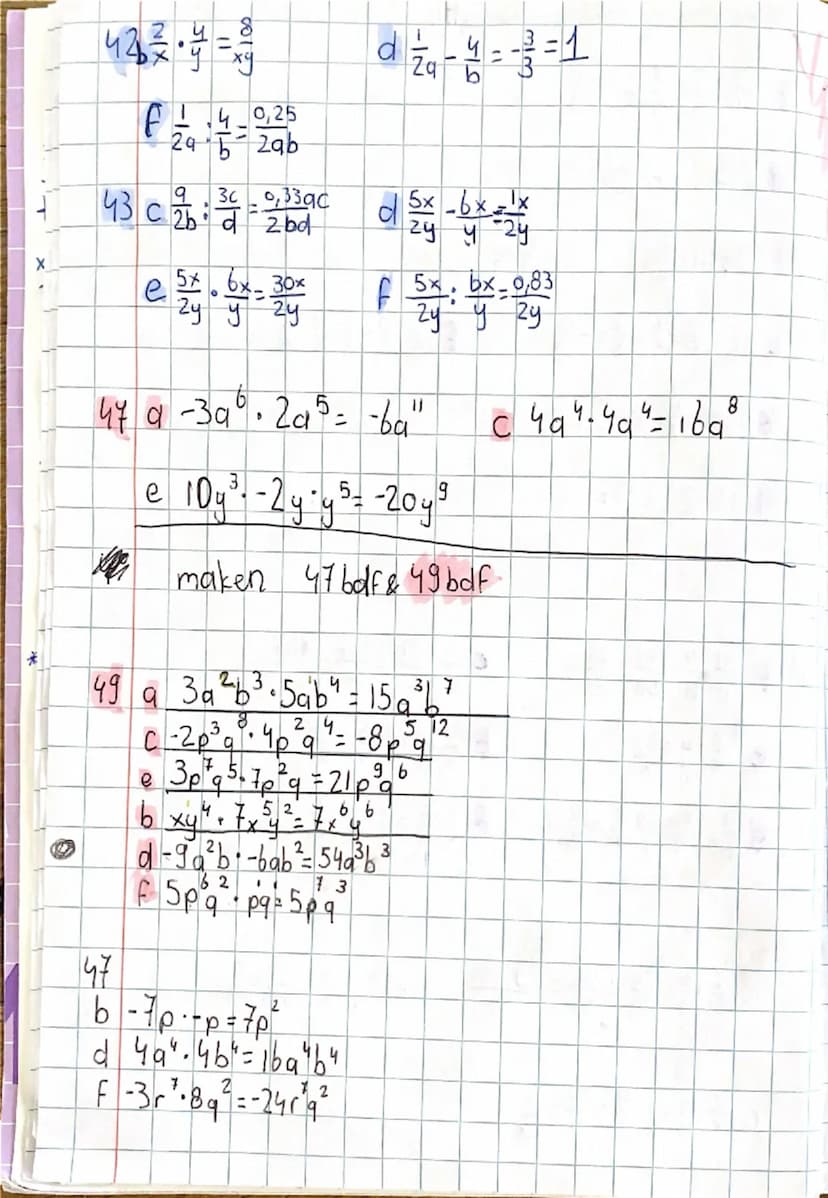 42 b 2/x · 4/y = 8/xy d 1/2a - 4/b = -3/3 = 1
f 1/2a : 4/b = 0,25/2ab
43 c a/2b : 3c/d = 0,33ac/2bd d 5x/2y - 6x/y = 1x/2y
e 5x/2y · 6x/y = 30x/2y f 5x/2y : 6x/y = 0,83/2y
47 a -3a⁶ · 2a⁵ = -6a¹¹ c 4a⁴ · 4a⁴ = 16a⁸
e 10y³ · -2y · y⁵ = -20y⁹
maken 47bdf & 49bdf
*
49 a 3a²b³ · 5ab⁴ = 15a³b⁷
c -2p³q⁸ · 4p²q⁴ = -8p⁵q¹²
e 3p⁷q⁵ · 7p²q = 21p⁹q⁶
b xy⁴ · 7x⁵y² = 7x⁶y⁶
d -9a²b · -6ab² = 54a³b³
f 5p⁶q² · pq = 5p⁷q³
47
b -7p · -p = 7p²
d 4a⁴ · 4b⁴ = 16a⁴b⁴
f -3r⁷ · 8q² = -24r⁷q²